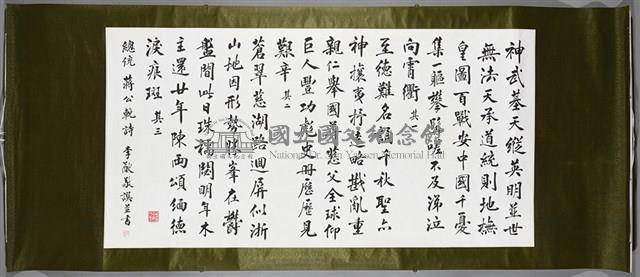 神武基天縱英明並世
無法天承道統則地撫
皇圖百戰安中國千憂
集一軀攀髯嗟不及涕泣
向霄衢 其一
至德難名頌千秋聖亦
神攘夷抒遠略戡亂重
親仁舉國尊慈父全球仰
巨人豐功彪史冊歷歷見
艱辛 其二
蒼翠慈湖路迴屏似浙
山地因形勢勝峯在鬱
盤間此日珠襦閟明年木
主還廿年陳兩頌緬德
淚痕斑 其三
總統 蔣公輓詩 李猷敬譔並書
國立國父紀念館
National Dr. Sun Yat-sen Memorial Hall